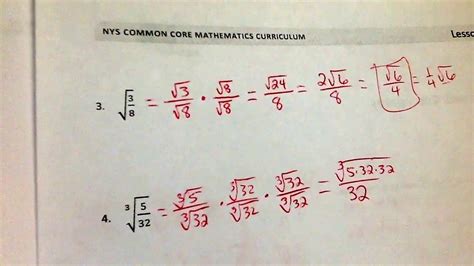 NYS COMMON CORE MATHEMATICS CURRICULUM Lesso
3. √(3/8) = √3/√8 · √8/√8 = √24/8 = 2√6/8 = √6/4 = 1/4 √6
4. ∛(5/32) = ∛5/∛32 · ∛32/∛32 · ∛32/∛32 = ∛(5·32·32)/32